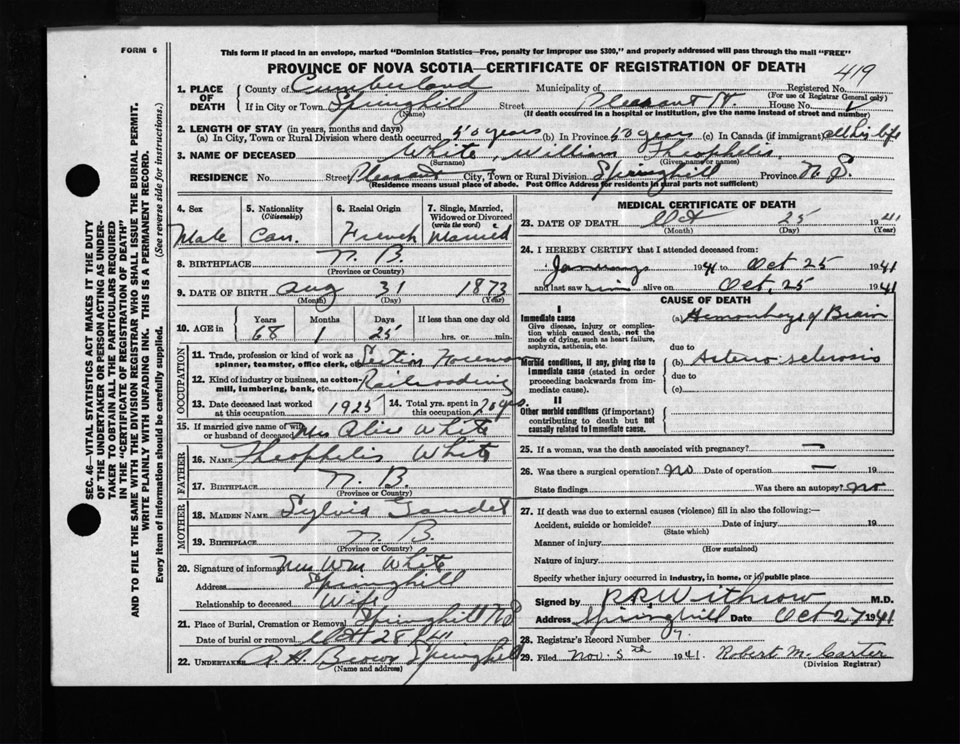 FORM 6
This form if placed in an envelope, marked "Dominion Statistics—Free, penalty for improper use $300," and properly addressed will pass through the mail "FREE"
PROVINCE OF NOVA SCOTIA—CERTIFICATE OF REGISTRATION OF DEATH
419
SEC. 46—VITAL STATISTICS ACT MAKES IT THE DUTY
OF THE UNDERTAKER OR PERSON ACTING AS UNDER-
TAKER TO OBTAIN ALL THE PARTICULARS REQUIRED
IN THE "CERTIFICATE OF REGISTRATION OF DEATH"
AND TO FILE THE SAME WITH THE DIVISION REGISTRAR WHO SHALL ISSUE THE BURIAL PERMIT.
WRITE PLAINLY WITH UNFADING INK. THIS IS A PERMANENT RECORD.
Every item of information should be carefully supplied. (See reverse side for instructions.)
1. PLACE OF DEATH
County of Cumberland Municipality of Registered No.
(For use of Registrar General only)
If in City or Town Springhill Street Pleasant St. House No.
(Name) (If death occurred in a hospital or institution, give the name instead of street and number)
2. LENGTH OF STAY (in years, months and days)
(a) In City, Town or Rural Division where death occurred 50 years (b) In Province 50 years (c) In Canada (if immigrant) all his life
3. NAME OF DECEASED White, William Theophelis,
(Surname) (Given name or names)
RESIDENCE No. Street Pleasant City, Town or Rural Division Springhill Province N.S.
(Residence means usual place of abode. Post Office Address for residents in rural parts not sufficient)
4. Sex
Male
5. Nationality
(Citizenship)
Can.
6. Racial Origin
French
7. Single, Married, Widowed or Divorced
(write the word)
Married
8. BIRTHPLACE N. B.
(Province or Country)
9. DATE OF BIRTH Aug 31 1873
(Month) (Day) (Year)
10. AGE in
Years Months Days If less than one day old
68 1 25 hrs. or min.
OCCUPATION
11. Trade, profession or kind of work as spinner, teamster, office clerk, etc. Section Foreman
12. Kind of industry or business, as cotton-mill, lumbering, bank, etc. Railroading
13. Date deceased last worked at this occupation 1925
14. Total yrs. spent in this occupation 28 yrs.
15. If married give name of wife or husband of deceased Mrs Alice White
FATHER
16. Name Theophelis White
17. Birthplace N. B.
(Province or Country)
MOTHER
18. Maiden Name Sylvia Gaudet
19. Birthplace N. B.
(Province or Country)
20. Signature of informant Mrs Wm White
Address Springhill
Relationship to deceased Wife
21. Place of Burial, Cremation or Removal Springhill N.S
Date of burial or removal Oct 28
22. Undertaker A. H. Brown Springhill
(Name and address)
MEDICAL CERTIFICATE OF DEATH
23. DATE OF DEATH Oct 25 1941
(Month) (Day) (Year)
24. I HEREBY CERTIFY that I attended deceased from:
January 1941 to Oct 25 1941
and last saw him alive on Oct. 25 1941
CAUSE OF DEATH
I
Immediate cause
Give disease, injury or complication which caused death, not the mode of dying, such as heart failure, asphyxia, asthenia, etc.
(a) Hemorrhage of Brain
due to
Morbid conditions, if any, giving rise to immediate cause (stated in order proceeding backwards from immediate cause).
(b) Arterio-sclerosis
due to
(c)
II
Other morbid conditions (if important) contributing to death but not causally related to immediate cause.
25. If a woman, was the death associated with pregnancy? —
26. Was there a surgical operation? no Date of operation — 19
State findings Was there an autopsy? no
27. If death was due to external causes (violence) fill in also the following:—
Accident, suicide or homicide? Date of injury 19
(State which)
Manner of injury
(How sustained)
Nature of injury
Specify whether injury occurred in industry, in home, or in public place
Signed by R.R. Withrow M.D.
Address Springhill Date Oct 27 1941
28. Registrar's Record Number 7.
29. Filed Nov. 5th 1941. Robert M. Carter
(Division Registrar)